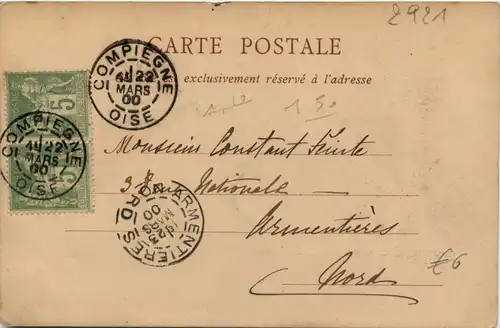 2921
CARTE POSTALE
exclusivement réservé à l'adresse
COMPIEGNE
22
MARS
00
OISE
COMPIEGNE
22
MARS
00
OISE
5
1 50
Monsieur Constant
3 Rue Nationale
ARMENTIERES
23
MARS
00
NORD
Armentières
Nord
€6